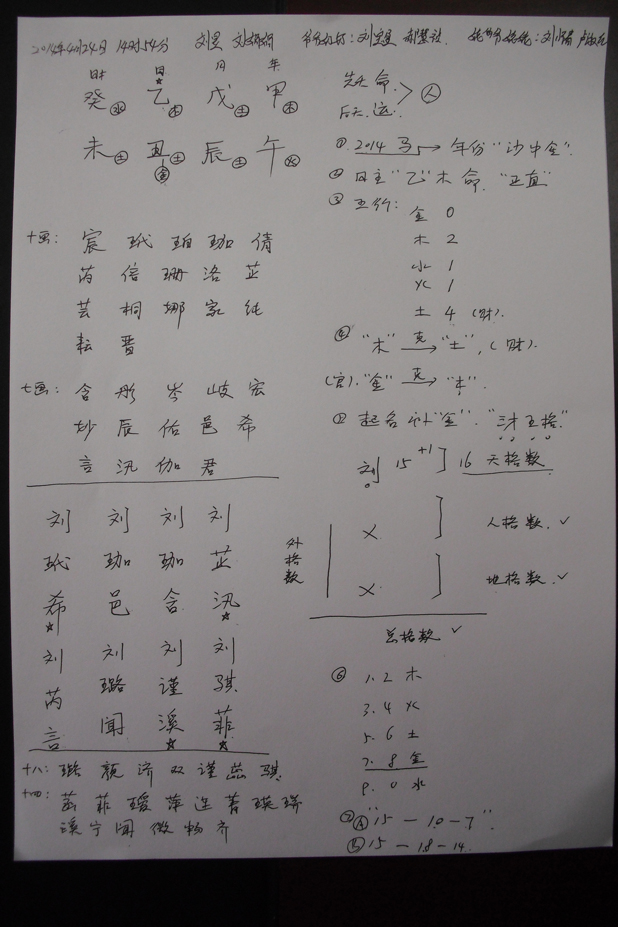 2014年4月24日 14时54分
时 日 月 年
癸水 乙木 戊土 甲木
未土 丑土 辰土 午火
金
十画: 宸 玳 珀 珈 倩
芮 倍 珊 洛 芷
芸 桐 娜 家 纯
耘 晋
七画: 含 彤 岑 岐 宏
妙 辰 佑 邑 希
言 汛 伽 君
刘 刘 刘 刘
玳 珈 珈 芷
希 邑 含 汛
刘 刘 刘 刘
芮 璐 谨 骐
言 闻 溪 菲
十八: 璐 颜 济 双 谨 蕊 骐
十四: 菡 菲 瑷 萍 连 菁 瑛 瑞
溪 宁 闻 微 畅 齐
先天 命
后天 运 人
① 2014 马 → 年份 "沙中金"
② 日主 "乙"木 命 "正直"
③ 五行:
金 0
木 2
水 1
火 1
土 4 (财)
④ "木" 克→ "土", (财)
(官) "金" 克→ "木"
① 起名 补"金" "三才五格"
刘 15 +1 ] 16 天格数
外格数
× ] 人格数 ✓
× ] 地格数 ✓
总格数 ✓
⑥ 1. 2 木
3. 4 火
5. 6 土
7. 8 金
9. 0 水
⑦ A "15 — 10 — 7"
B 15 — 18 — 14